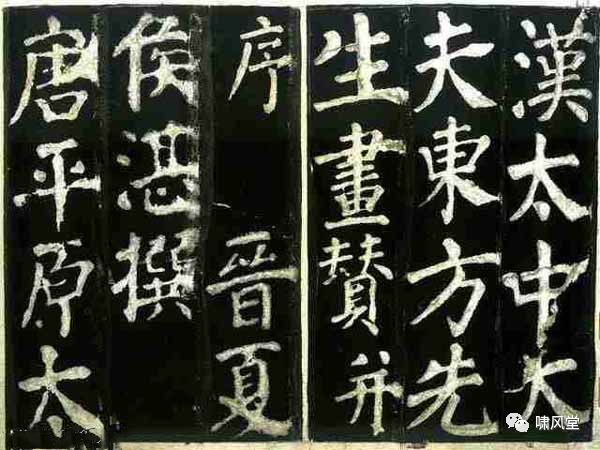 漢太中大
夫東方先
生畫贊并
序 晉夏
侯湛撰
唐平原太
啸风堂